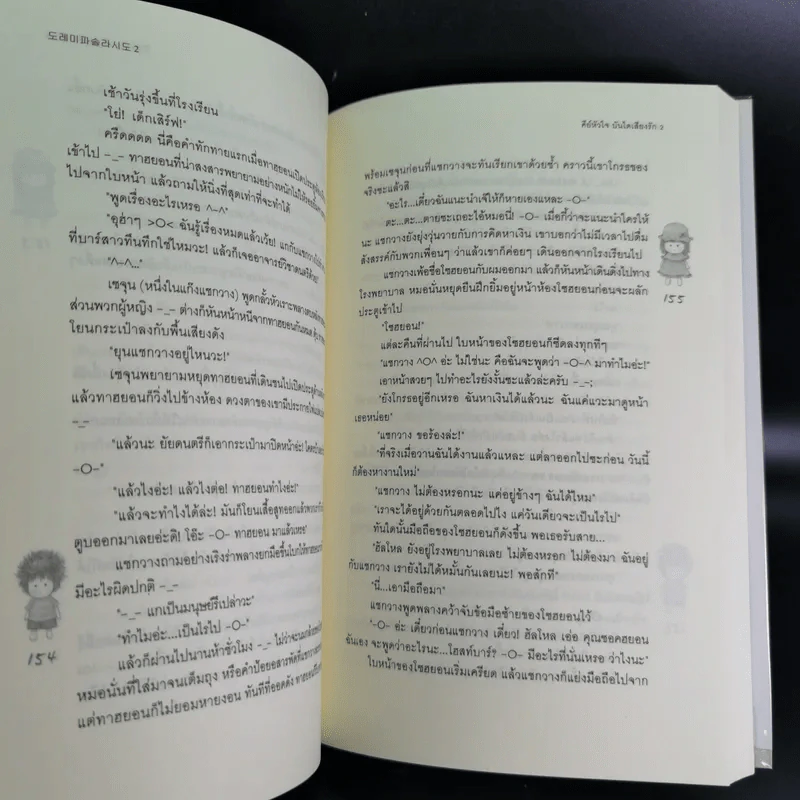 도레미파솔라시도 2
เช้าวันรุ่งขึ้นที่โรงเรียน
"โย่! เด็กเสิร์ฟ!"
ครืดดดด นี่คือคำทักทายแรกเมื่อทาฮยอนเปิดประตู
เข้าไป -_- ทาฮยอนที่น่าสงสารพยายามอย่างหนักไม่ให้
ไปจากใบหน้า แล้วถามให้นิ่งที่สุดเท่าที่จะทำได้
"พูดเรื่องอะไรเหรอ ^-^"
"อุฮ่าๆ >O< ฉันรู้เรื่องหมดแล้วเว้ย! แกกับแชกวาง
ที่บาร์สาวทึนทึกใช่ไหมวะ! แล้วก็เจออาจารย์วิชาดนตรีด้วย!"
"^-^..."
เซจุน (หนึ่งในแก๊งแชกวาง) พูดกลั้วหัวเราะพลาง
ส่วนพวกผู้หญิง -_- ต่างก็หันหน้าหนีจากทาฮยอนกันหมด
โยนกระเป๋าลงกับพื้นเสียงดัง
"ยุนแชกวางอยู่ไหนวะ!"
เซจุนพยายามหยุดทาฮยอนที่เดินชนไปเปิดประตู
แล้วทาฮยอนก็วิ่งไปข้างห้อง ดวงตาของเขามีประกาย
-_-
"แล้วนะ ยัยดนตรีก็เอากระเป๋ามาปิดหน้าอ่ะ!
-O-"
"แล้วไงอ่ะ! แล้วไงต่อ! ทาฮยอนทำไงอ่ะ!"
"แล้วจะทำไงได้ล่ะ! มันก็โยนเสื้อสูทออกแล้ว
ตูบออกมาเลยอ่ะดิ! โอ๊ะ -O- ทาฮยอน มาแล้วเหรอ"
แชกวางถามอย่างเริงร่าพลางยกมือขึ้นโบก
มีอะไรผิดปกติ -_-
"-_- แกเป็นมนุษย์รึเปล่าวะ"
"ทำไมอ่ะ...เป็นไรไป -O-"
แล้วก็ผ่านไปนานห้าชั่วโมง -_- ไม่ว่าจะ
หมอนั่นที่ใส่มาจนเต็มถุง หรือคำป้อยอสารพัดที่แชกวาง
แต่ทาฮยอนก็ไม่ยอมหายงอน ทันทีที่ออดดัง
154
คีย์หัวใจ บันไดเสียงรัก 2
พร้อมเซจุนก่อนที่แชกวางจะทันเรียกเขาด้วยซ้ำ คราวนี้เขาโกรธของ
จริงซะแล้วสิ
"อะไร...เดี๋ยวฉันแนะนำเจ๊ให้ก็หายเองแหละ -O-"
ตะ...ตะ...ตายซะเถอะไอ้หมอนี่! -O- เมื่อกี้ว่าจะแนะนำใครให้
นะ แชกวางยังยุ่งวุ่นวายกับการคิดหาเงิน เขาบอกว่าไม่มีเวลาไปดื่ม
สังสรรค์กับพวกเพื่อนๆ ว่าแล้วเขาก็ค่อยๆ เดินออกจากโรงเรียนไป
แชกวางเพ้อชื่อโซฮยอนกับผมออกมา แล้วก็หันหน้าเดินดิ่งไปทาง
โรงพยาบาล หมอนั่นหยุดยืนฝึกยิ้มอยู่หน้าห้องโซฮยอนก่อนจะผลัก
ประตูเข้าไป
"โซฮยอน!"
แต่ละคืนที่ผ่านไป ใบหน้าของโซฮยอนก็ซีดลงทุกทีๆ
"แชกวาง ^O^ อ่ะ ไม่ใช่นะ คือฉันจะพูดว่า -O-^ มาทำไมอ่ะ!"
เอาหน้าสวยๆ ไปทำอะไรยังงั้นซะแล้วล่ะครับ -_-;
"ยังโกรธอยู่อีกเหรอ ฉันหาเงินได้แล้วนะ ฉันแค่แวะมาดูหน้า
เธอหน่อย"
"แชกวาง ขอร้องล่ะ!"
"ที่จริงเมื่อวานฉันได้งานแล้วแหละ แต่ลาออกไปซะก่อน วันนี้
ก็ต้องหางานใหม่"
"แชกวาง ไม่ต้องหรอกนะ แค่อยู่ข้างๆ ฉันได้ไหม"
"เราจะได้อยู่ด้วยกันตลอดไปไง แค่วันเดียวจะเป็นไรไป"
ทันใดนั้นมือถือของโซฮยอนก็ดังขึ้น พอเธอรับสาย...
"ฮัลโหล ยังอยู่โรงพยาบาลเลย ไม่ต้องหรอก ไม่ต้องมา ฉันอยู่
กับแชกวาง เรายังไม่ได้หมั้นกันเลยนะ! พอสักที"
"นี่...เอามือถือมา"
แชกวางพูดพลางคว้าจับข้อมือซ้ายของโซฮยอนไว้
"-O- อ่ะ เดี๋ยวก่อนแชกวาง เดี๋ยว! ฮัลโหล เอ่อ คุณซอคฮยอน
ฉันเอง จะพูดว่าอะไรนะ...โฮสท์บาร์? -O- มีอะไรที่นั่นเหรอ ว่าไงนะ"
ใบหน้าของโซฮยอนเริ่มเครียด แล้วแชกวางก็แย่งมือถือไปจาก
155